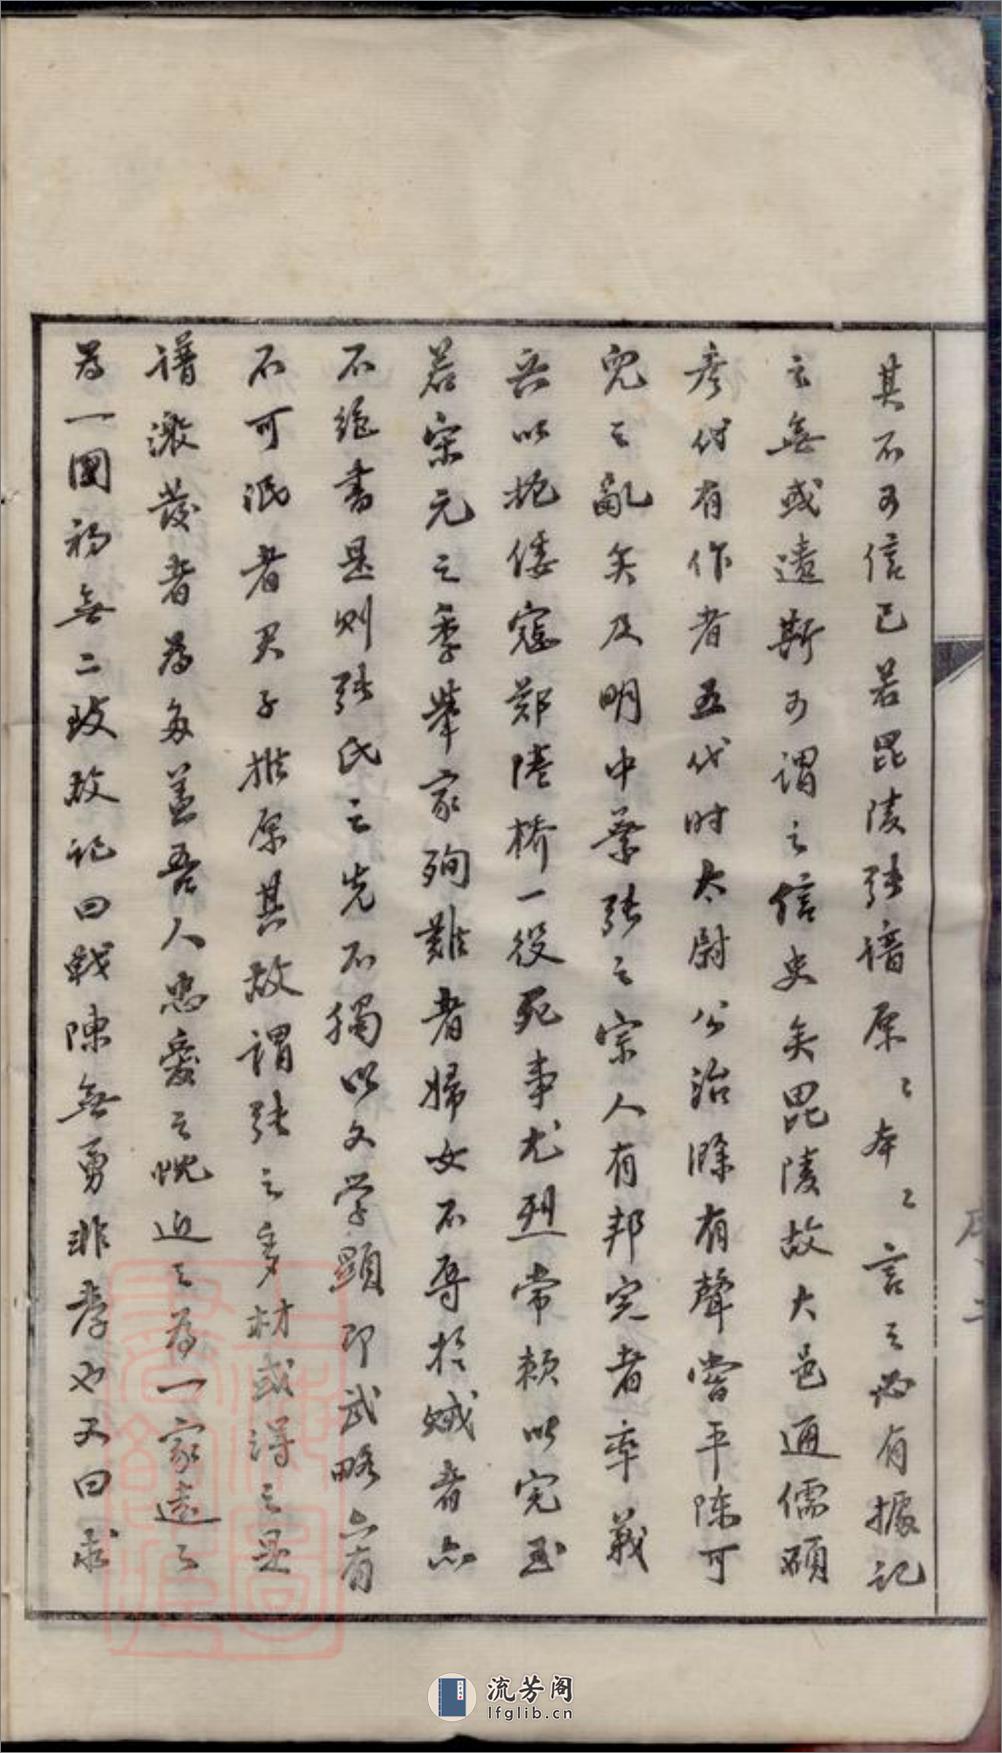 其不可信已若毘陵張譜原〻本〻言之必有據記
之無或遺斯可謂之信史矣毘陵故大邑通儒碩
彥代有作者五代时太尉公治滁有聲嘗平陈可
兒之亂矣及明中葉張之宗人有邦完者率義
兵以抗倭寇郑陸橋一役死事尤烈常赖以完至
若宋元之季舉家殉難者婦女不辱於贼者亦
不絕書是则張氏之先不獨以文学顯即武略亦有
不可泯者君子推原其故謂張之多材或得之是
譜激發者為多蓋吾人忠愛之忱近之為一家遠之
為一國初無二致故记曰戰陳無勇非孝也又曰求
序
二
流芳阁
lfglib.cn